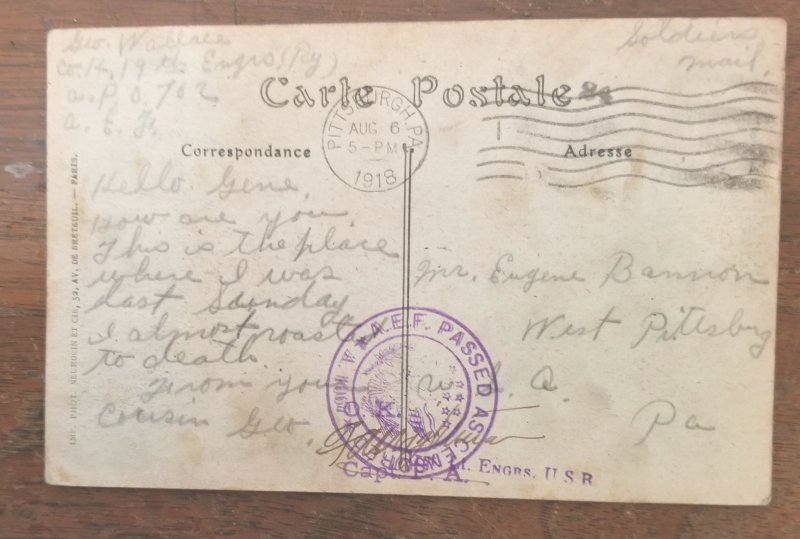 Geo. Wallace
Co. H, 19th Engrs (Ry)
a. P. O. 702
a. E. F.
Soldiers
mail.
Carte Postale
PITTSBURGH, PA.
AUG 6
5-PM
1918
Correspondance
Adresse
Hello Gene,
How are you.
This is the place
where I was
last Sunday
I almost roasted
to death.
From your
Cousin Geo.
Mr. Eugene Bannon
West Pittsburg
U. S. A.
Pa
A.E.F. PASSED AS CENSORED
Capt. Engrs. U.S.R.
IMP. PHOT. NEURDEIN ET CIE, 52, AV. DE BRETEUIL. — PARIS.